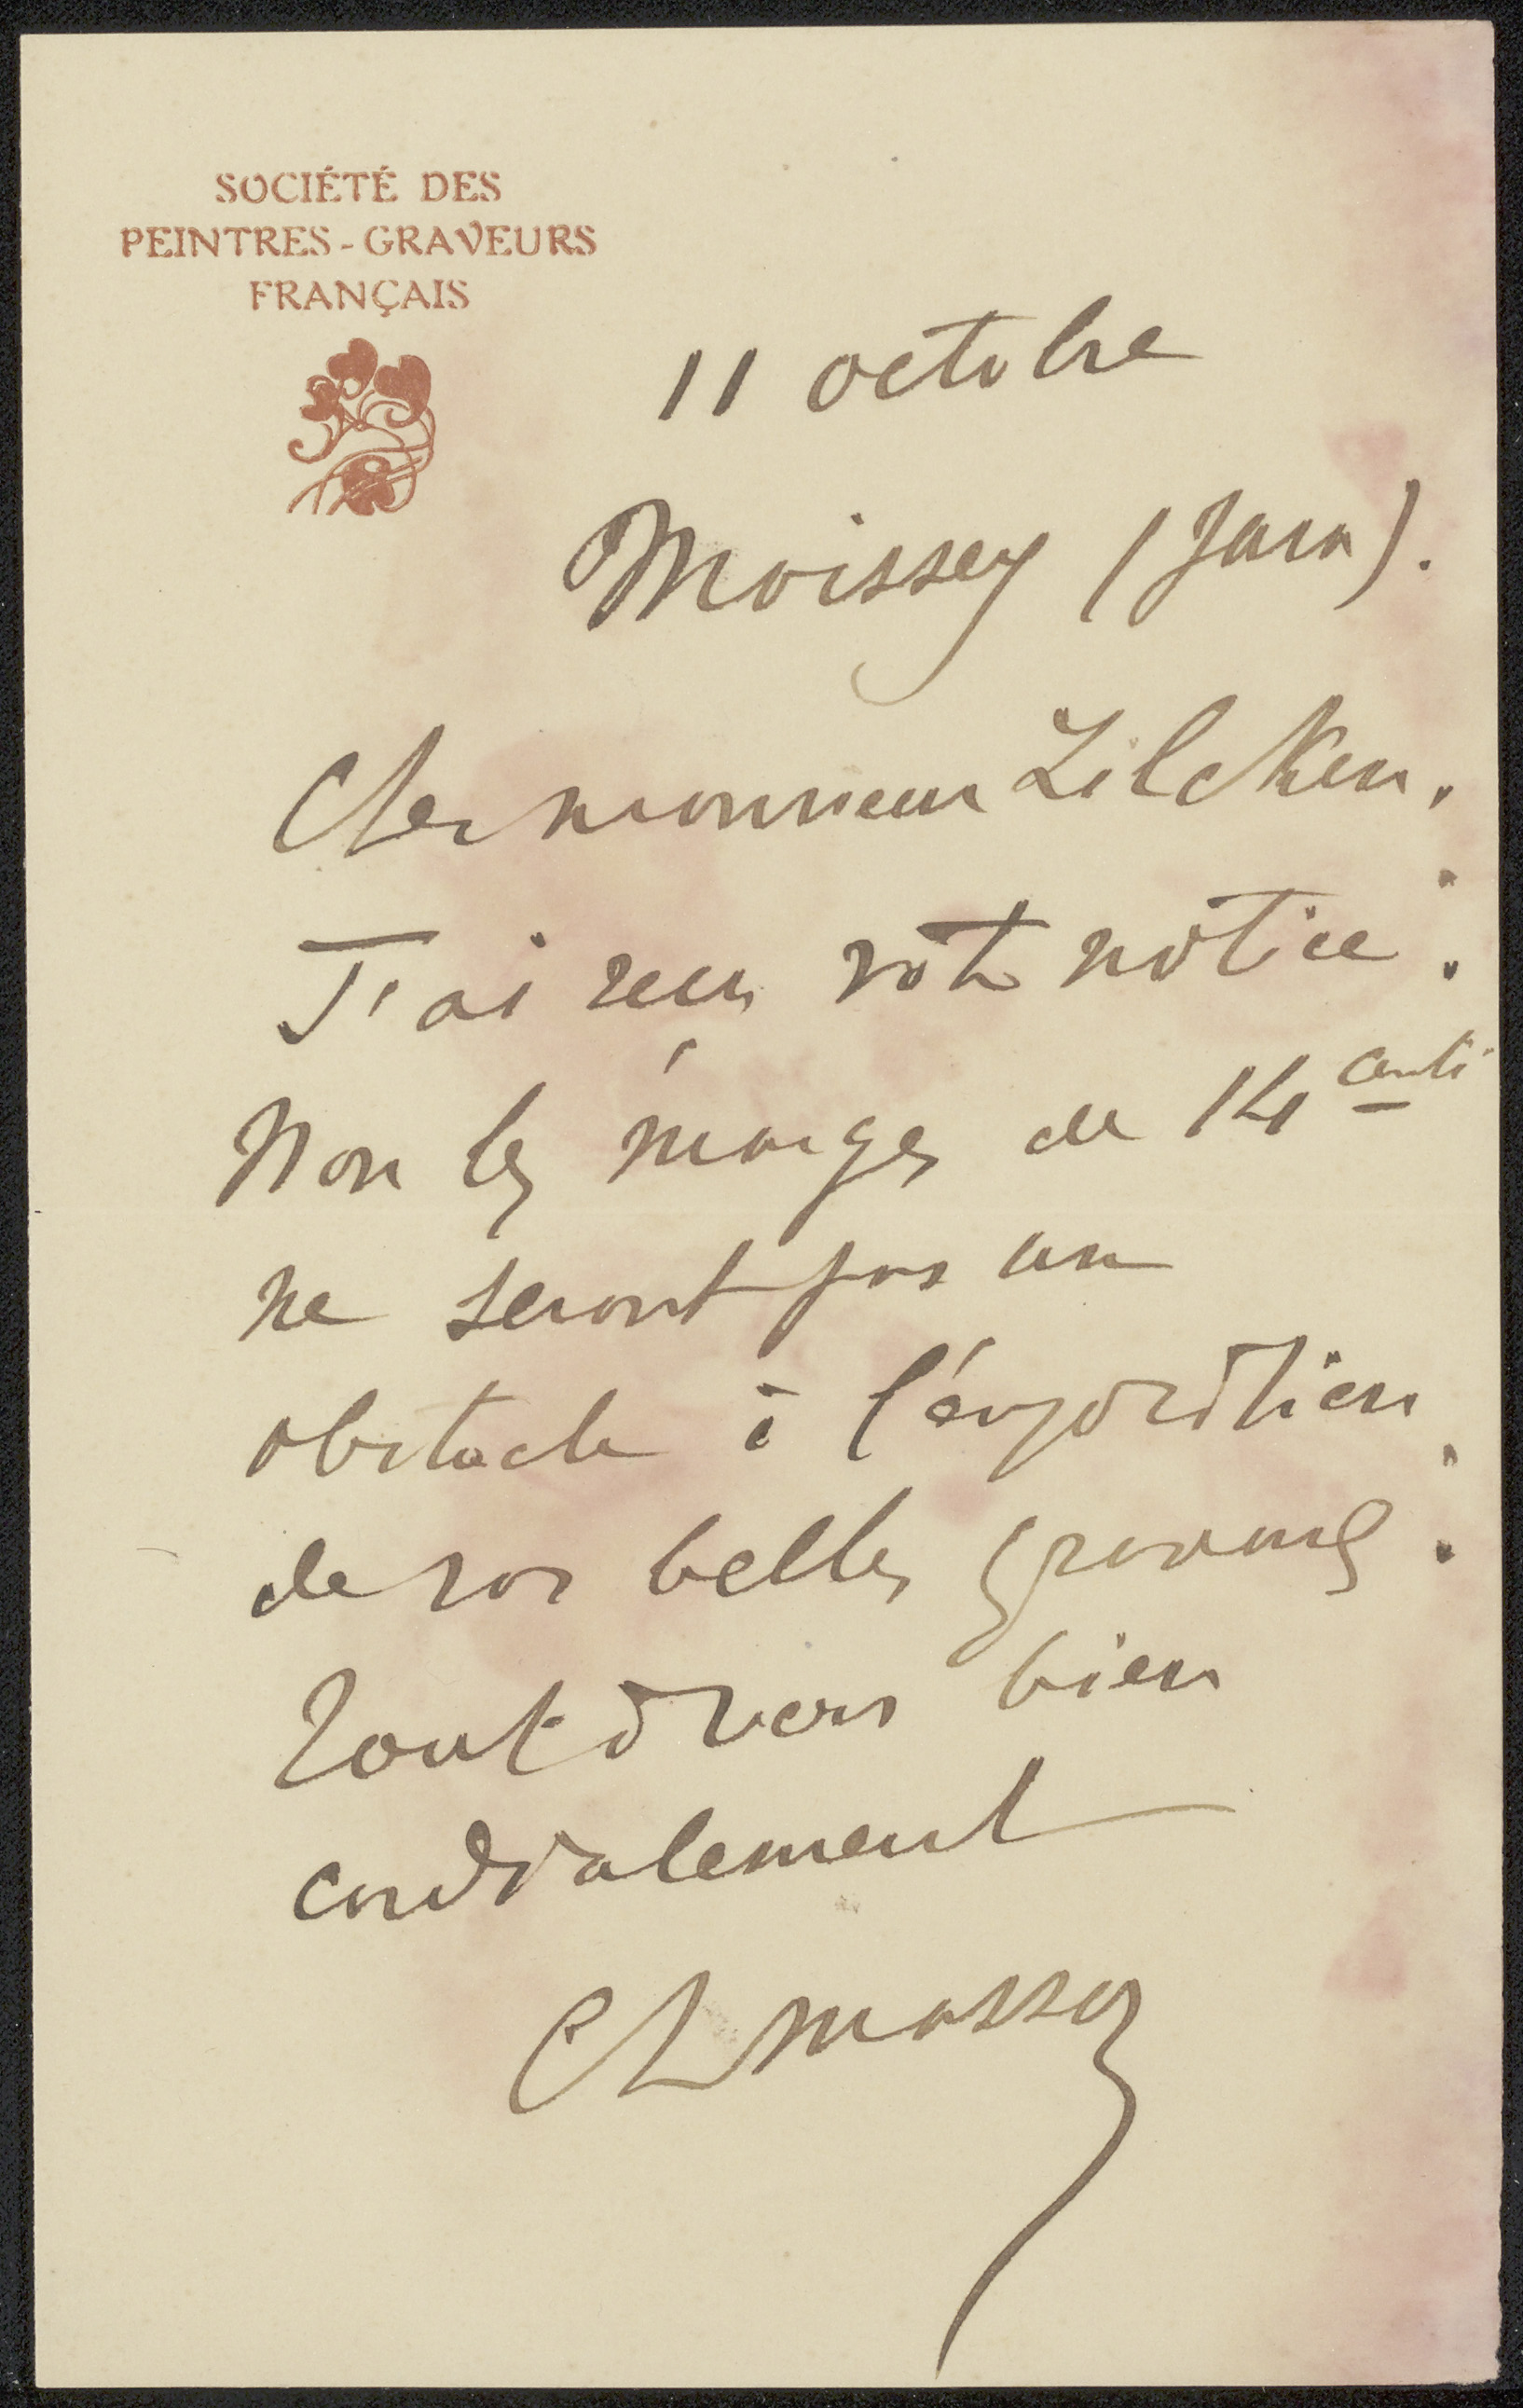 SOCIÉTÉ DES
PEINTRES-GRAVEURS
FRANÇAIS
11 octobre
Moissey (Jura).
Cher monsieur Zilcken.
J'ai reçu votre notice.
Non les marges de 14 centi
ne seront pas un
obstacle à l'exposition
de vos belles gravures.
Tout à vous bien
cordialement
Ch Massé